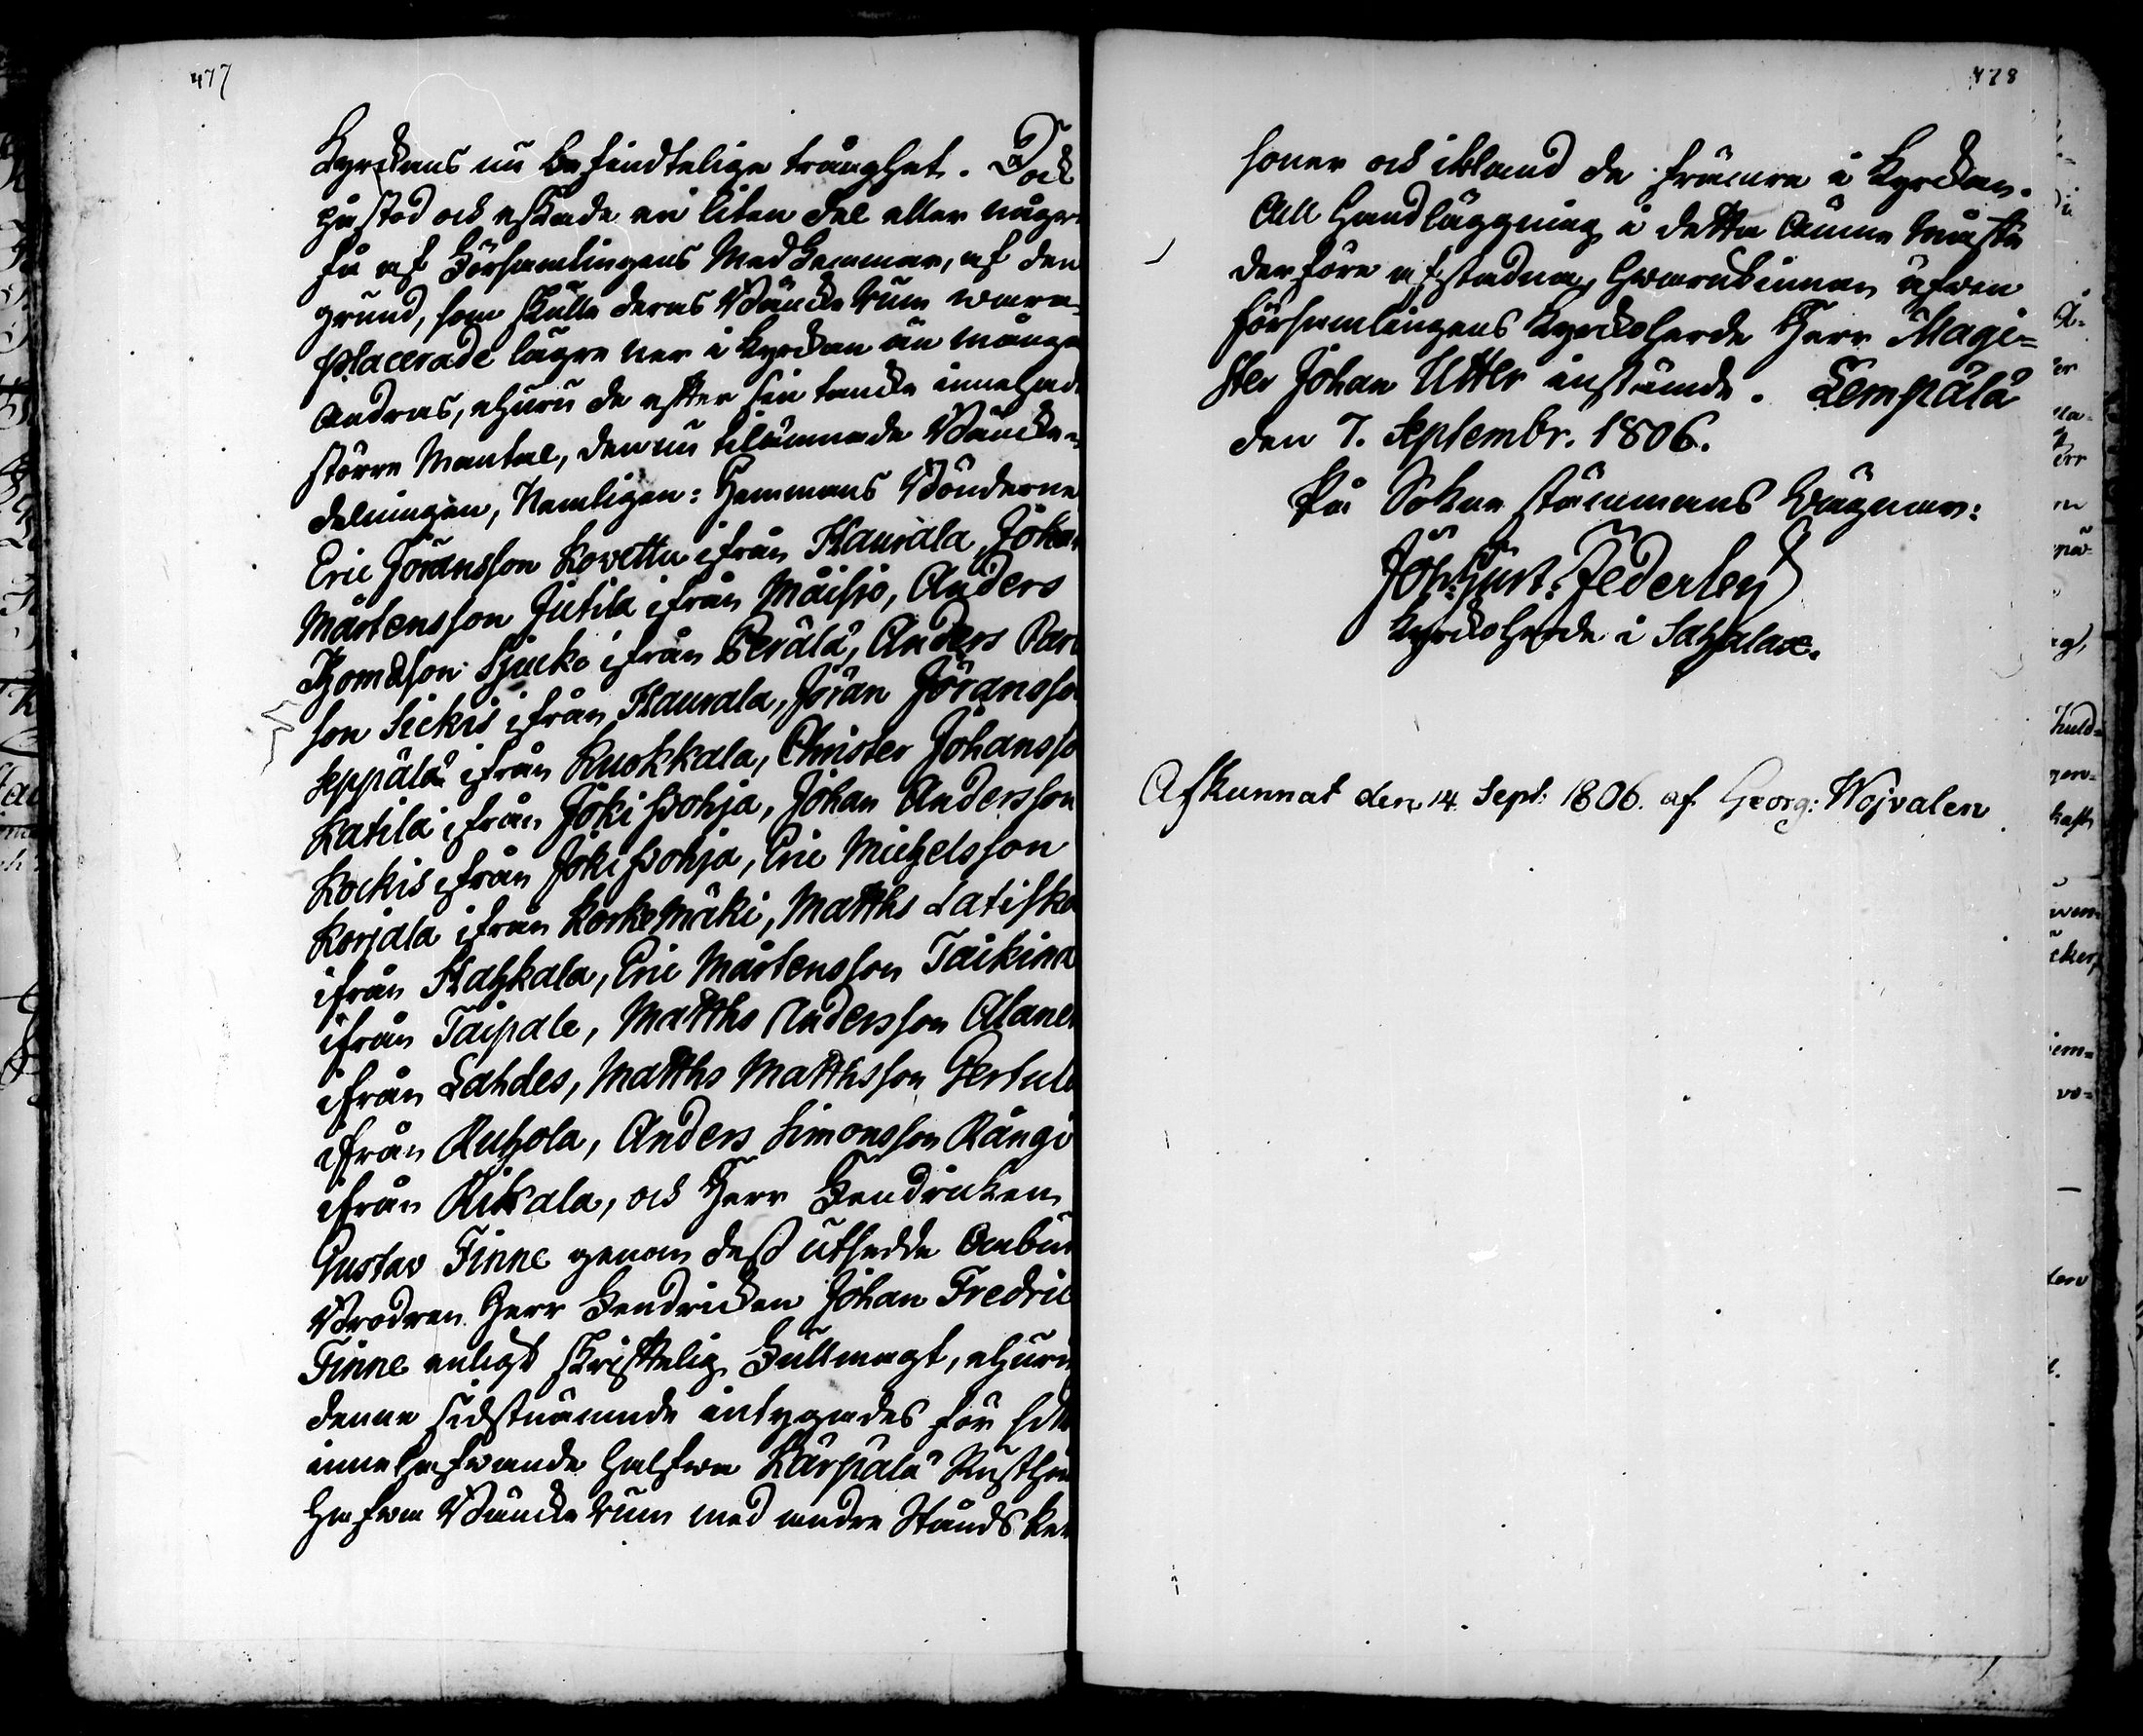 477
Kyrckans nu befindtelige trånghet. Dock
påstod och askade en liten del eller några
få af Församlingens Medlemmar, af den
grund, som skulle deras Bäncke rum wara
placerade lägre ner i Kyrckan än många
Andras, ehuru de efter sin tancke innehade
större Mantal, den nu tilämnade Bäncke-
delningen, Nemligen: Hemmans Bönderne
Eric Jöransson Kovettu ifrån Haurala, Johan
Mårtensson Jutila ifrån Måisio, Anders
Thomasson Sjucko ifrån Perälä, Anders
son Sickis ifrån Haurala, Jöran Jöransson
Seppälä ifrån Kuokkala, Christer Johansso
Katila ifrån Jokipohja, Johan Andersson
Kockis ifrån Jokipohja, Eric Michelsson
Korjala ifrån Korkemäki, Matths Latisko
ifrån Hahkala, Eric Mårtensson Taikina
ifrån Taipale, Matths Andersson Alanen
ifrån Lahdes, Matths Matthsson Pertula
ifrån Ruhola, Anders Simonsson Rångi
ifrån Rikala, och Herr Fendricken
Gustav Finne genom dess utsedde Ombud
Brodren Herr Fendricken Johan Fredric
Finne enligt skriftelig Fullmagt, ehuru
denne sidstnämnde intygades för sitt
innehafwande halfwa Kärpälä Rusthåll
hafwa Bäncke rum med andre Stånds Per
478
soner och ibland de främre i Kyrckan.
All Handläggning i detta Ämne måste
derföre afstadna, hwarutinnan äfwen
Församlingens Kyrckoherde Herr Magi-
ster Johan Utter instämde. Lempälä
den 7. Septembr. 1806.
På Sockne stämmans wägnar:
Joh: Gust: Federley
Kyrckoherde i Sahalax.
Afkunnat den 14 Sept: 1806. af Georg: Wojvalen